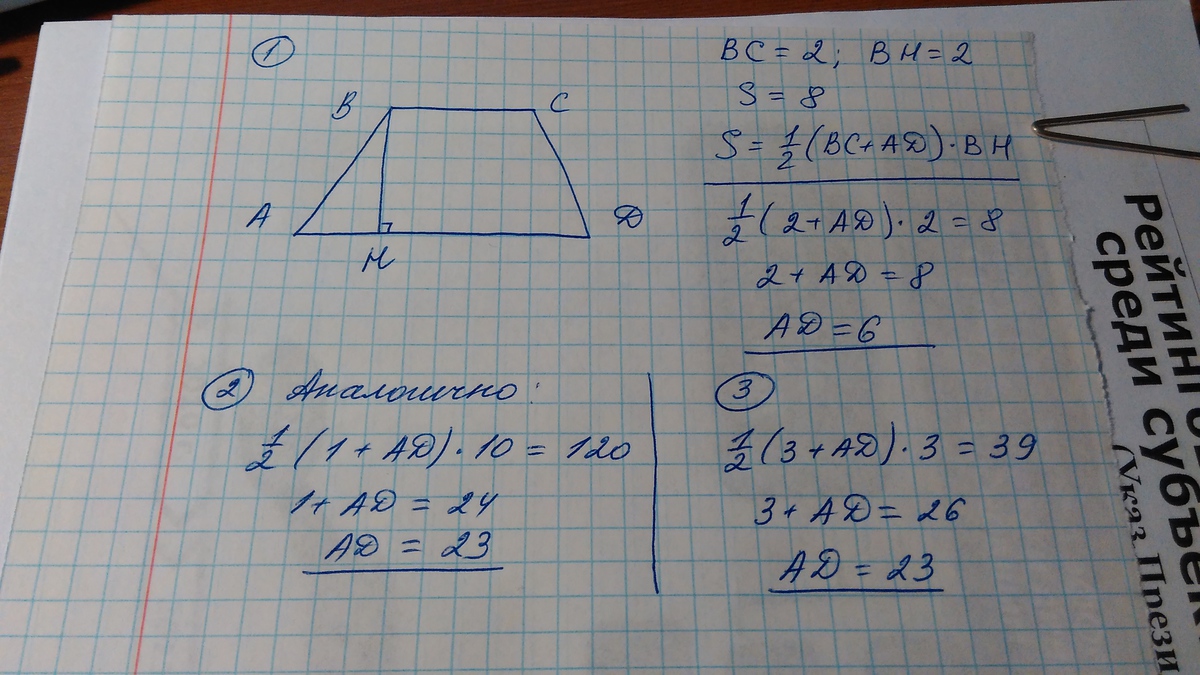 1
B C
A H D
BC = 2; BH = 2
S = 8
S = 1/2 (BC + AD) · BH
1/2 (2 + AD) · 2 = 8
2 + AD = 8
AD = 6
2 Аналогично:
1/2 (1 + AD) · 10 = 120
1 + AD = 24
AD = 23
3
1/2 (3 + AD) · 3 = 39
3 + AD = 26
AD = 23
среди субъек
(Указ. Прези